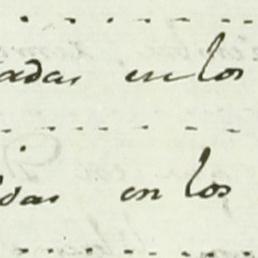 adas en los
das en los